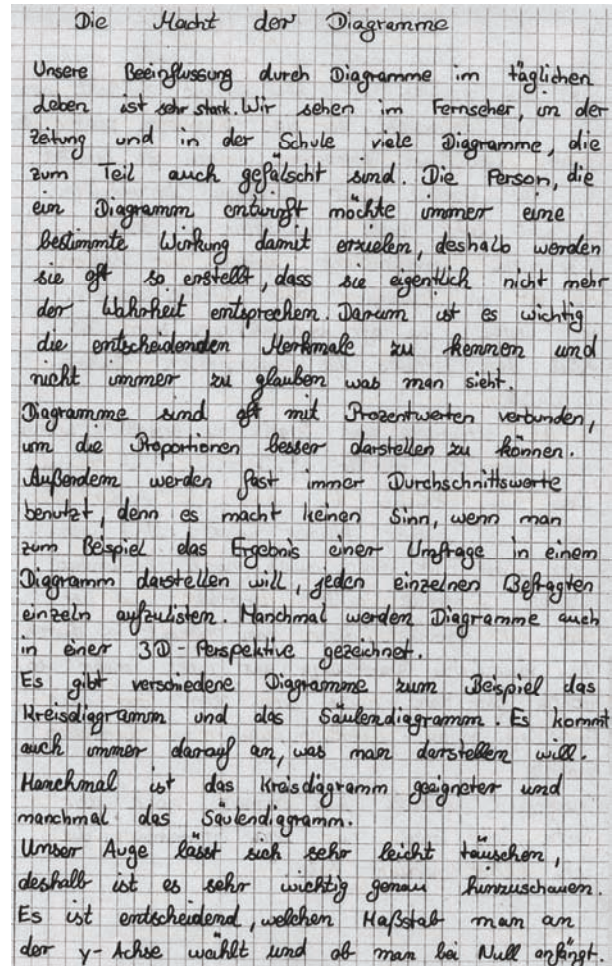 Die Macht der Diagramme
Unsere Beeinflussung durch Diagramme im täglichen
Leben ist sehr stark. Wir sehen im Fernseher, in der
Zeitung und in der Schule viele Diagramme, die
zum Teil auch gefälscht sind. Die Person, die
ein Diagramm entwirft möchte immer eine
bestimmte Wirkung damit erzielen, deshalb werden
sie oft so erstellt, dass sie eigentlich nicht mehr
der Wahrheit entsprechen. Darum ist es wichtig
die entscheidenden Merkmale zu kennen und
nicht immer zu glauben was man sieht.
Diagramme sind oft mit Prozentwerten verbunden,
um die Proportionen besser darstellen zu können.
Außerdem werden fast immer Durchschnittswerte
benutzt, denn es macht keinen Sinn, wenn man
zum Beispiel das Ergebnis einer Umfrage in einem
Diagramm darstellen will, jeden einzelnen Befragten
einzeln aufzulisten. Manchmal werden Diagramme auch
in einer 3D-Perspektive gezeichnet.
Es gibt verschiedene Diagramme zum Beispiel das
Kreisdiagramm und das Säulendiagramm. Es kommt
auch immer darauf an, was man darstellen will.
Manchmal ist das Kreisdiagramm geeigneter und
manchmal das Säulendiagramm.
Unser Auge lässt sich sehr leicht täuschen,
deshalb ist es sehr wichtig genau hinzuschauen.
Es ist entscheidend, welchen Maßstab man an
der y-Achse wählt und ob man bei Null anfängt.